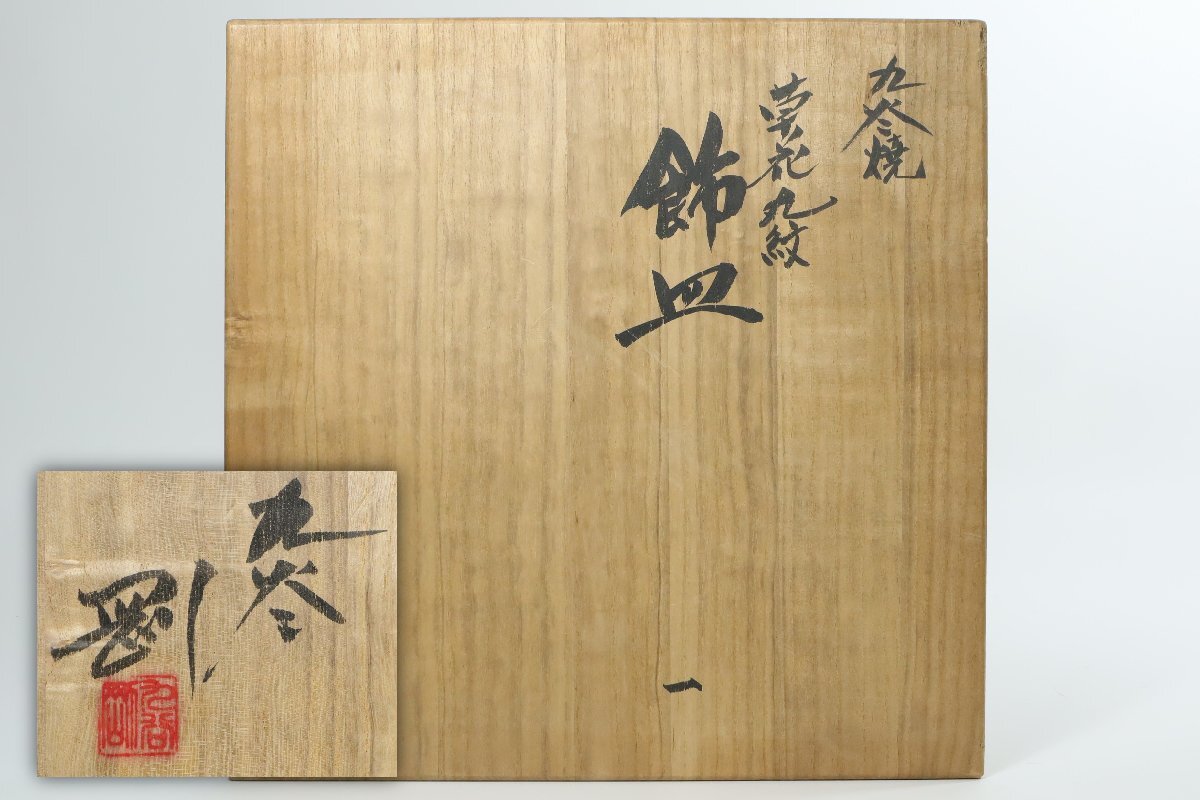 九谷焼
草花丸紋
飾皿
一
九谷
剛